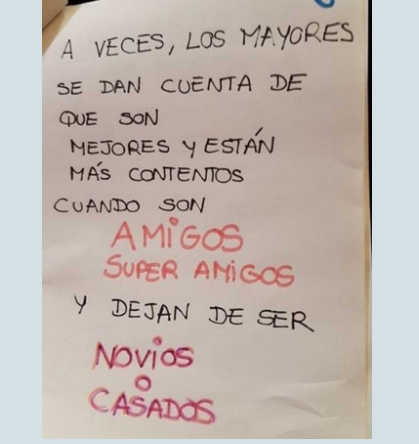 A VECES, LOS MAYORES
SE DAN CUENTA DE
QUE SON
MEJORES Y ESTÁN
MÁS CONTENTOS
CUANDO SON
AMiGOS
SUPER AMiGOS
Y DEJAN DE SER
NOViOS
O
CASADOS